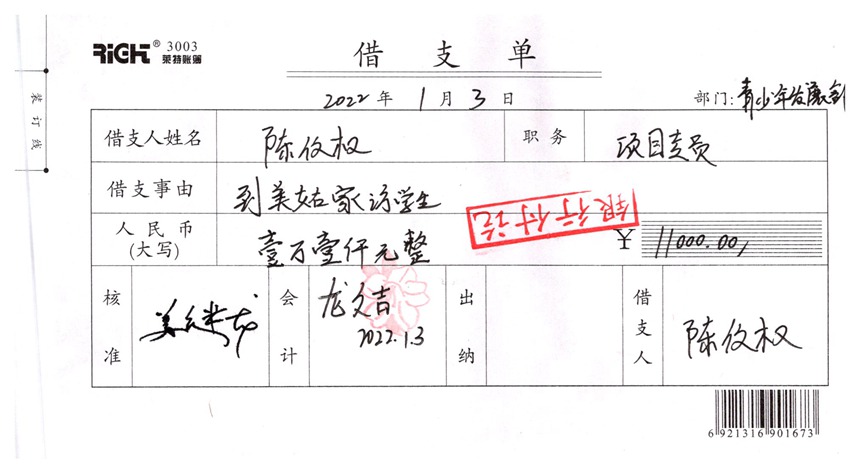 RiGHT® 3003
莱特账簿
借支单
2022年1月3日
部门:青少年发展
装订线
借支人姓名 陈仅权 职务 项目专员
借支事由 到美姑家访学生
银行付讫
人民币(大写) 壹万壹仟元整 ¥ 11000.00
核准 会计 龙久吉 2022.1.3 出纳 借支人 陈仅权
6 921316 901673